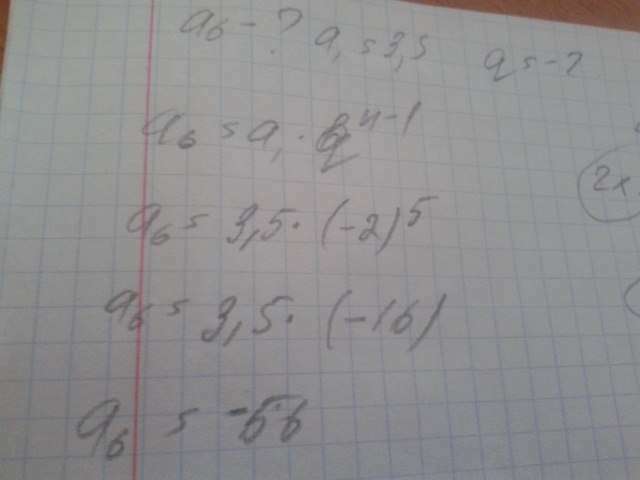 a₆ - ? a₁ = 3,5 q = -2
a₆ = a₁ · q^(n-1)
a₆ = 3,5 · (-2)^5
a₆ = 3,5 · (-16)
a₆ = -56
2x